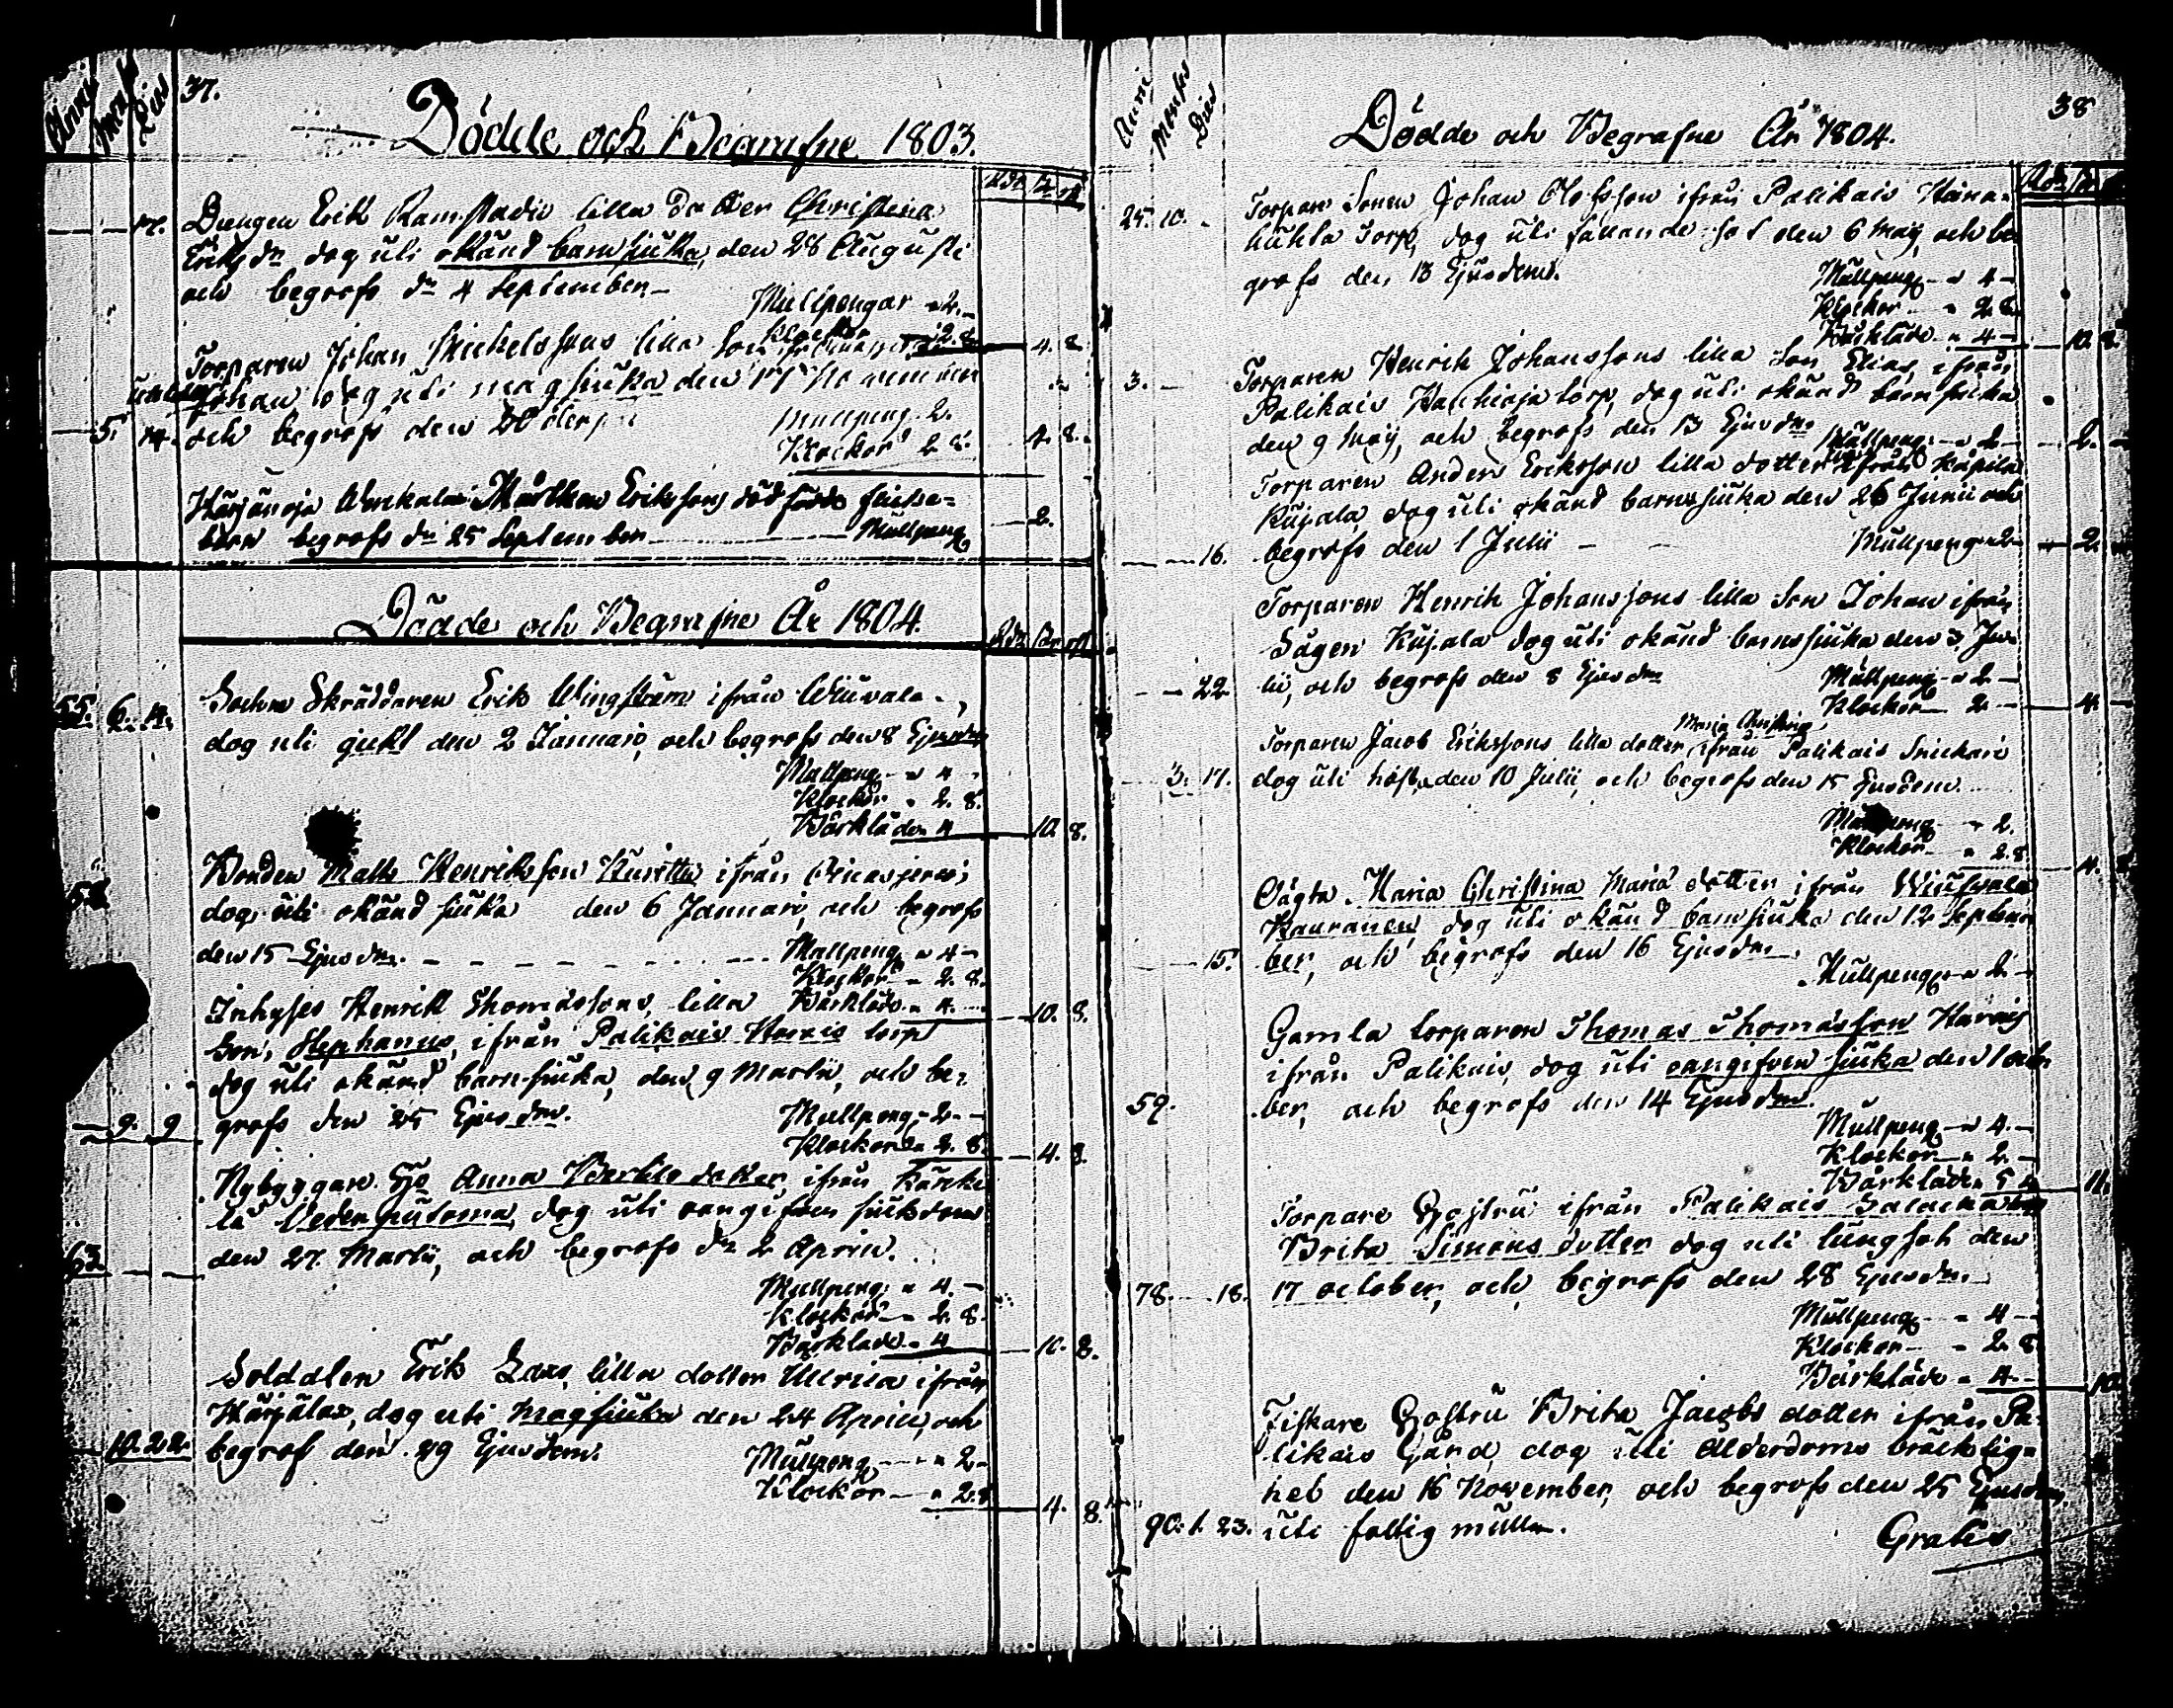 Anni Mens Dies
37.
Dödde och Begrafne 1803.
Rdr
Drengen Erik Ramstadii lilla Dotter Christina
Eriks dr dog uti okänd barnsjuka, den 28 Augusti
och begrofs dn 4 September
Mullpengar 2.
Klockor 2. 8.
4. 8.
Torparen Johan Mickelssons lilla Son
Johan dog uti magsjuka den
5. 14. och begrofs den
Mullpeng. 2.
Klockor 2. 8.
4. 8.
Mårthen Erikssons dödfödde
barn begrofs dn 25 September Mullpeng
2.
Dödde och Begrafne År 1804.
Rdr
Sochne Skräddaren Erik Wingström ifrån
55. 6. dog uti gickt den 2 Januarii, och begrofs den 8 Ejusdm
Mullpeng 4
Klockor 2. 8.
Bårkläde 4
10. 8.
Bonden Matts Henriksson ifrån
58. dog uti okänd siuka den 6 Januarii, och begrofs
den 15 Ejusdm.
Mullpeng 4
Klockor 2. 8.
Bårkläde 4.
10. 8.
Inhyses Henrik Thomassons, lilla
Son, Stephanus, ifrån Palikais torp
dog uti okänd barnsiuka, den 9 Martii, och be-
9. 9 grofs den 25 Ejusdm.
Mullpeng 2.
Klockor 2. 8.
4. 8.
Nybyggare Anna Bertils dotter ifrån
dog uti oangifven siukdom
63 den 27. Martii, och begrofs dn 2 April.
Mullpeng 4.
Klockor 2. 8.
Bårkläde 4
10. 8.
Soldaten Erik Lans, lilla dotter Ulrica ifrån
dog uti magsiuka den 24 April, och
10. 22. begrof den 29 Ejusdem.
Mullpeng 2
Klockor 2. 8
4. 8.
Anni Menses Dies
Dödde och Begrafne År 1804.
38
Torpare Sonen Johan Olofsson ifrån Palikais
25. 10. Torp, dog uti fallande sot den 6 Maij, och be
grofs den 13 Ejusdem.
Mullpeng 4
Klockor 2. 8.
Bårkläde 4
10. 8.
Torparen Henrik Johanssons lilla Son Elias, ifrån
3. Palikais torp, dog uti okänd barnsiuka
den 9 Maij, och begrofs den 13 Ejusdm
Mullpeng 2
2.
Torparen Anders Erikssons lilla dotter ifrån
Kujala, dog uti okänd barnsiuka den 26 Junii och
16. begrofs den 1 Julii
Mullpeng 2
2.
Torparen Henrik Johanssons lilla Son Johan ifrån
Sågen Kujala dog uti okänd barnsiuka den 3 Ju-
22 lii, och begrofs den 8 Ejusdm
Mullpeng 2
Klockor 2.
4.
Maria Christina
Torparen Jacob Erikssons lilla dotter ifrån Palikais Snickari
3. 17. dog uti hosta den 10 Julii, och begrofs den 15 Ejusdem.
Mullpeng 2.
Klockor 2. 8
4. 8
Oägta Maria Christina Maria dotter ifrån
Kauranen dog uti okänd barnsiuka den 12 Septem
15. ber, och begrofs den 16 Ejusdm
Mullpeng 2
Gamla torparen Thomas Thomasson
ifrån Palikais, dog uti oangifven siuka den 1 octo
59. ber, och begrofs den 14 Ejusdem.
Mullpeng 4.
Klockor 2.
Bårkläde 5
11.
Torpare ifrån Palikais
Brita Simons dotter dog uti lungsot den
78. 18. 17 october, och begrofs den 28 Ejusdm.
Mullpeng 4
Klockor 2. 8
Bårkläde 4
10.
Fiskare Brita Jacobs dotter ifrån Pa-
likais Gård, dog uti ålderdoms bräcklig-
het den 16 November, och begrofs den 25 Ejusdem,
90. 1. 23. uti fattig mullen.
Gratis